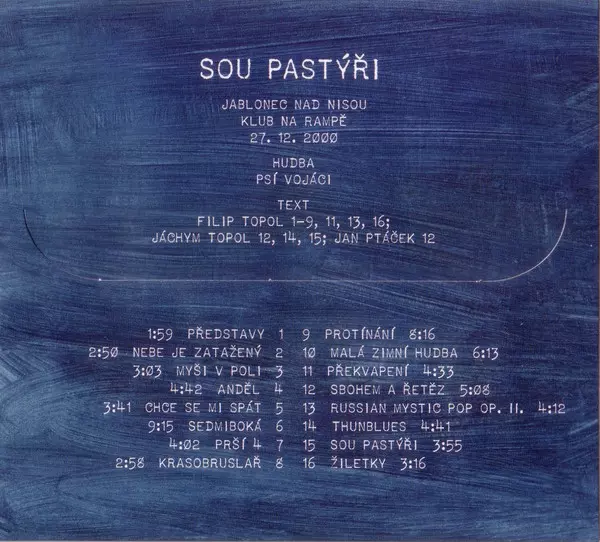 SOU PASTÝŘI
JABLONEC NAD NISOU
KLUB NA RAMPĚ
27. 12. 2000
HUDBA
PSÍ VOJÁCI
TEXT
FILIP TOPOL 1-9, 11, 13, 16;
JÁCHYM TOPOL 12, 14, 15; JAN PTÁČEK 12
1:59 PŘEDSTAVY 1
2:50 NEBE JE ZATAŽENÝ 2
3:03 MYŠI V POLI 3
4:42 ANDĚL 4
3:41 CHCE SE MI SPÁT 5
9:15 SEDMIBOKÁ 6
4:02 PRŠÍ 4 7
2:58 KRASOBRUSLAŘ 8
9 PROTÍNÁNÍ 8:16
10 MALÁ ZIMNÍ HUDBA 6:13
11 PŘEKVAPENÍ 4:33
12 SBOHEM A ŘETĚZ 5:08
13 RUSSIAN MYSTIC POP OP. II. 4:12
14 THUNBLUES 4:41
15 SOU PASTÝŘI 3:55
16 ŽILETKY 3:16